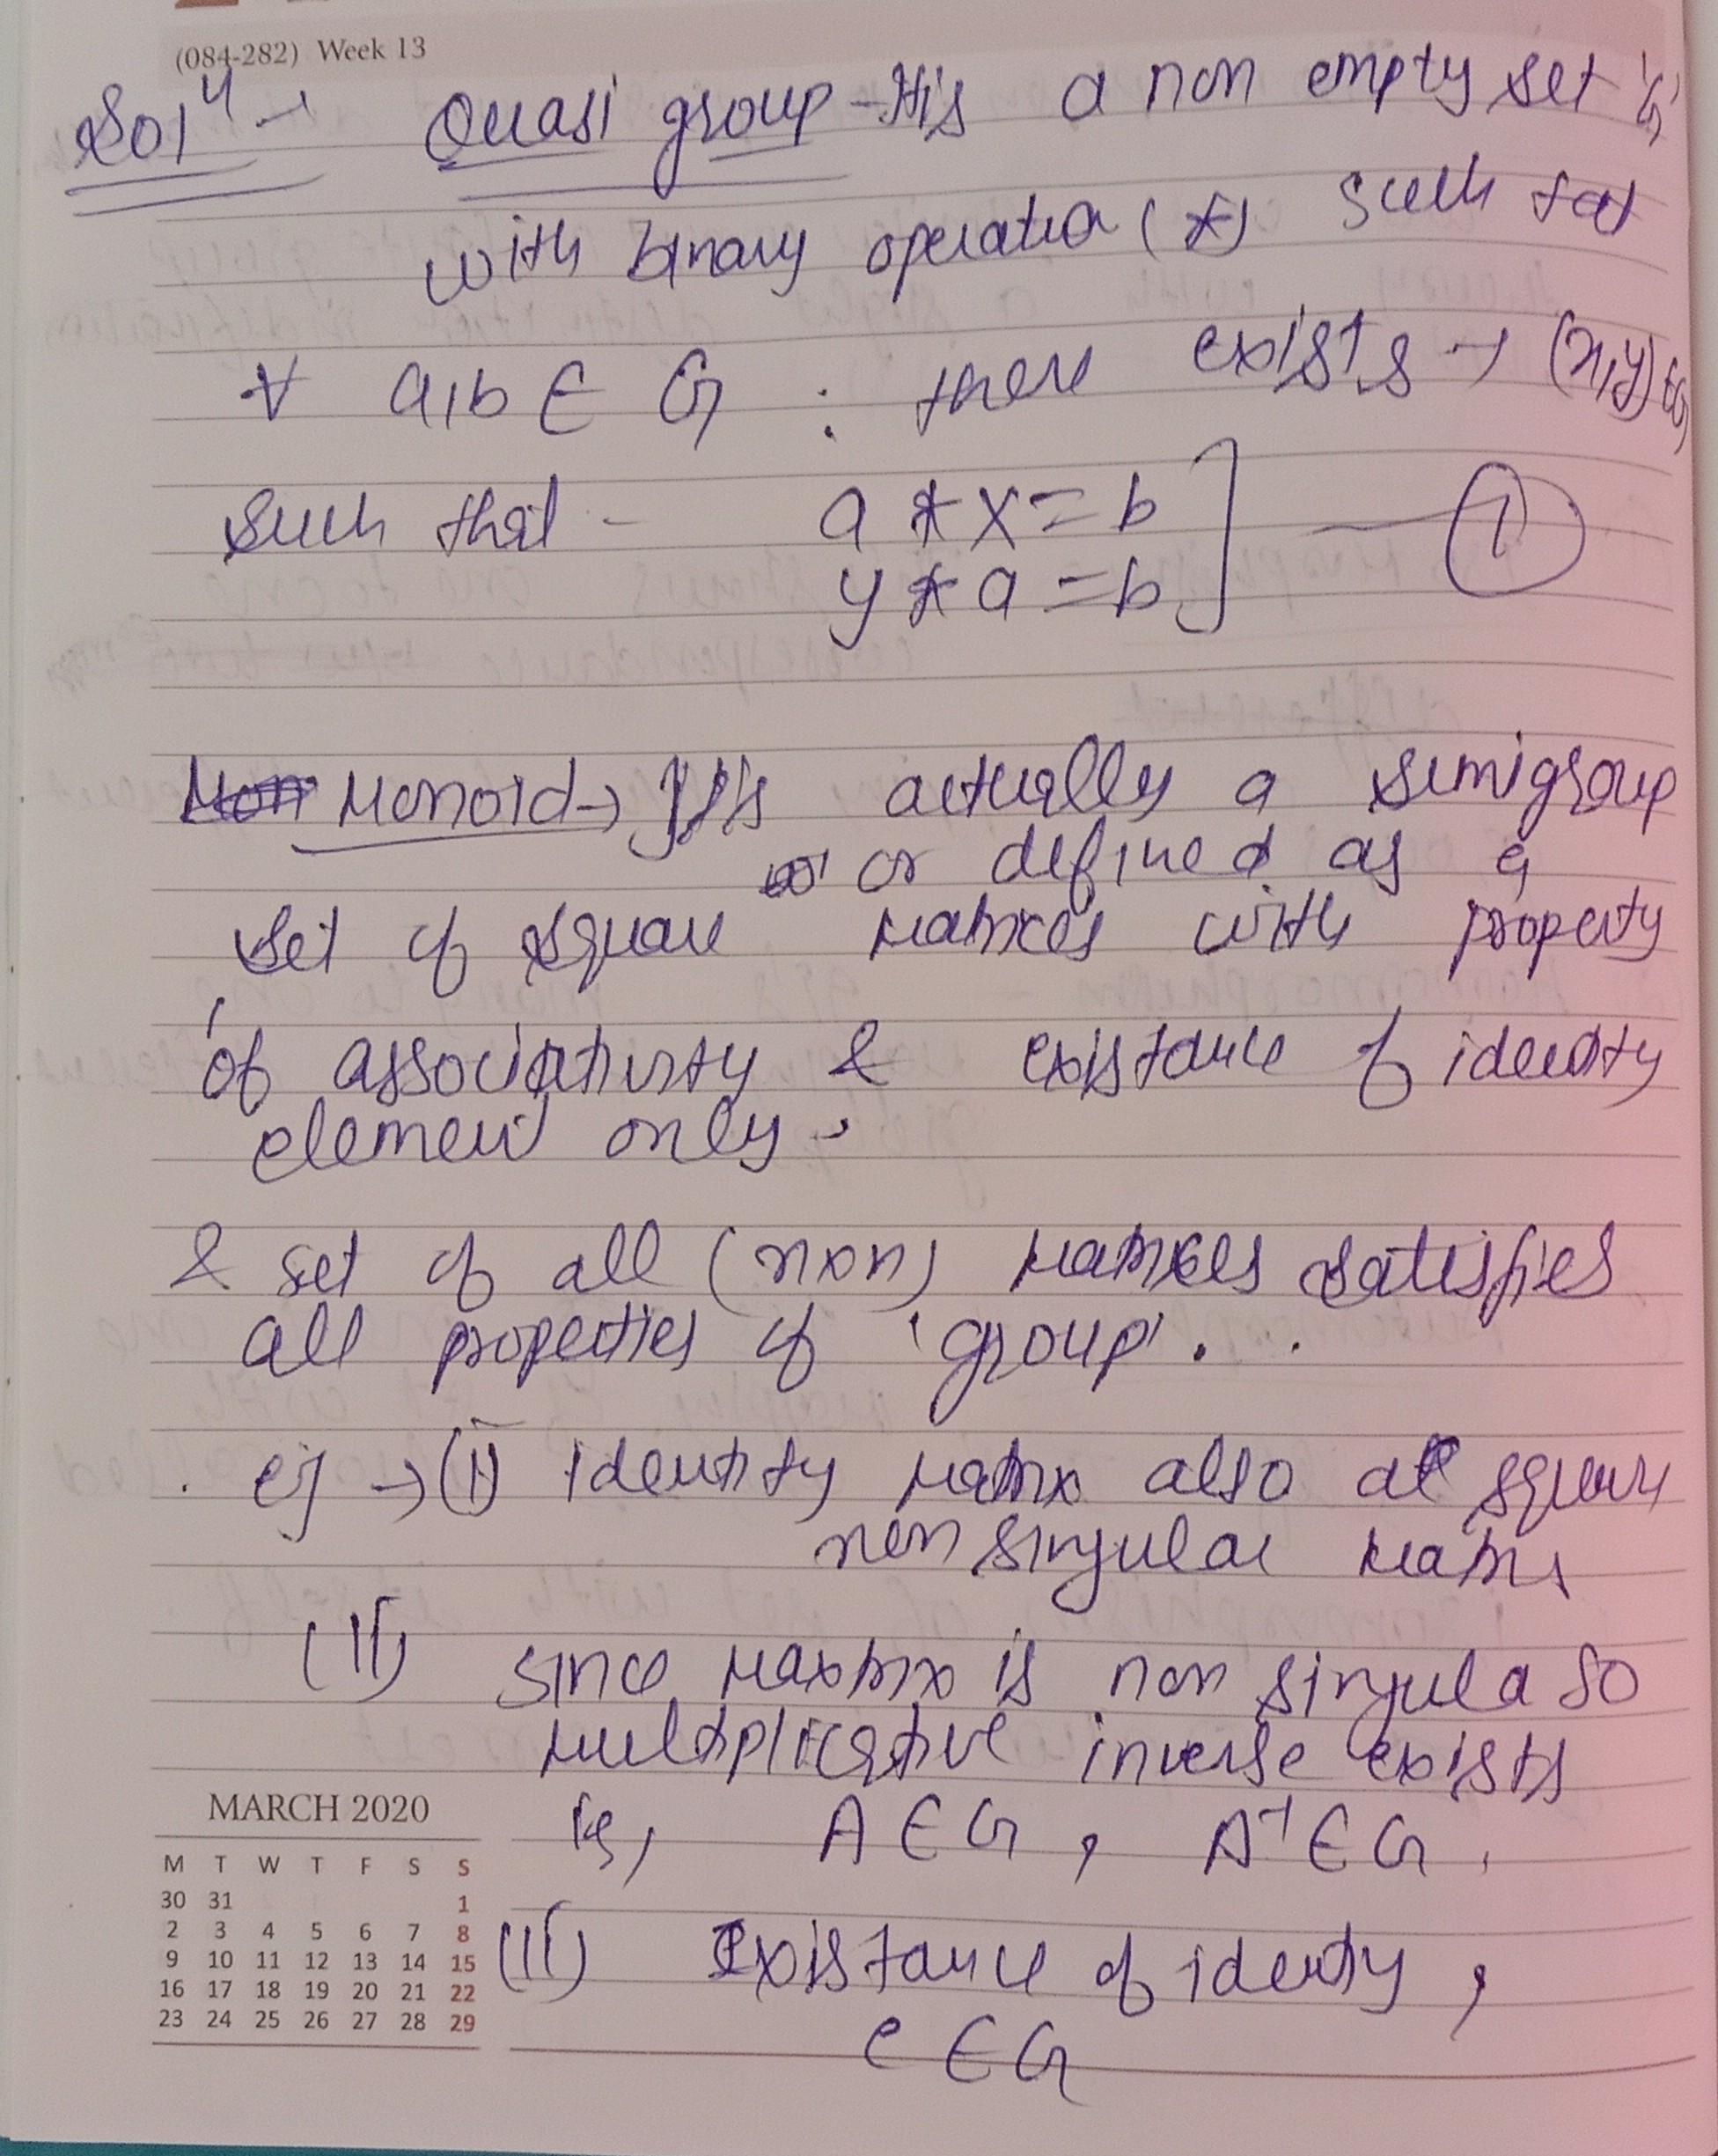 (084-282) Week 13
Sol4 → Quasi group - It's a non empty set 'G'
with binary operation (*) such tat
∀ a,b ∈ G : there exists → (x,y)∈G
such that - a * x = b
y * a = b ] — (1)
Monoid → It's actually a semigroup
or defined as a
set of square matrices with property
of associativity & existance of identity
element only.
& set of all (n×n) matrices satisfies
all properties of 'group'.
eg → (i) identity matrix also a square
non singular matrix
(II) since maxtrix is non singula so
multiplicative inverse exists
ie, A ∈ G, A⁻¹ ∈ G.
(III) Existance of identity,
e ∈ G
MARCH 2020
M T W T F S S
30 31 1
2 3 4 5 6 7 8
9 10 11 12 13 14 15
16 17 18 19 20 21 22
23 24 25 26 27 28 29